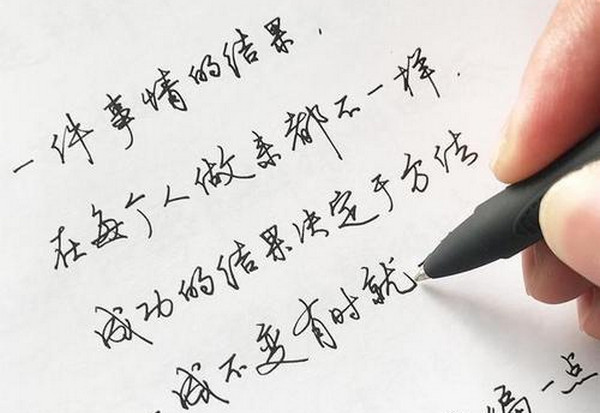 一件事情的结果.
在每个人做来都不一样.
成功的结果决定于方法
成不变有时就
偏一点